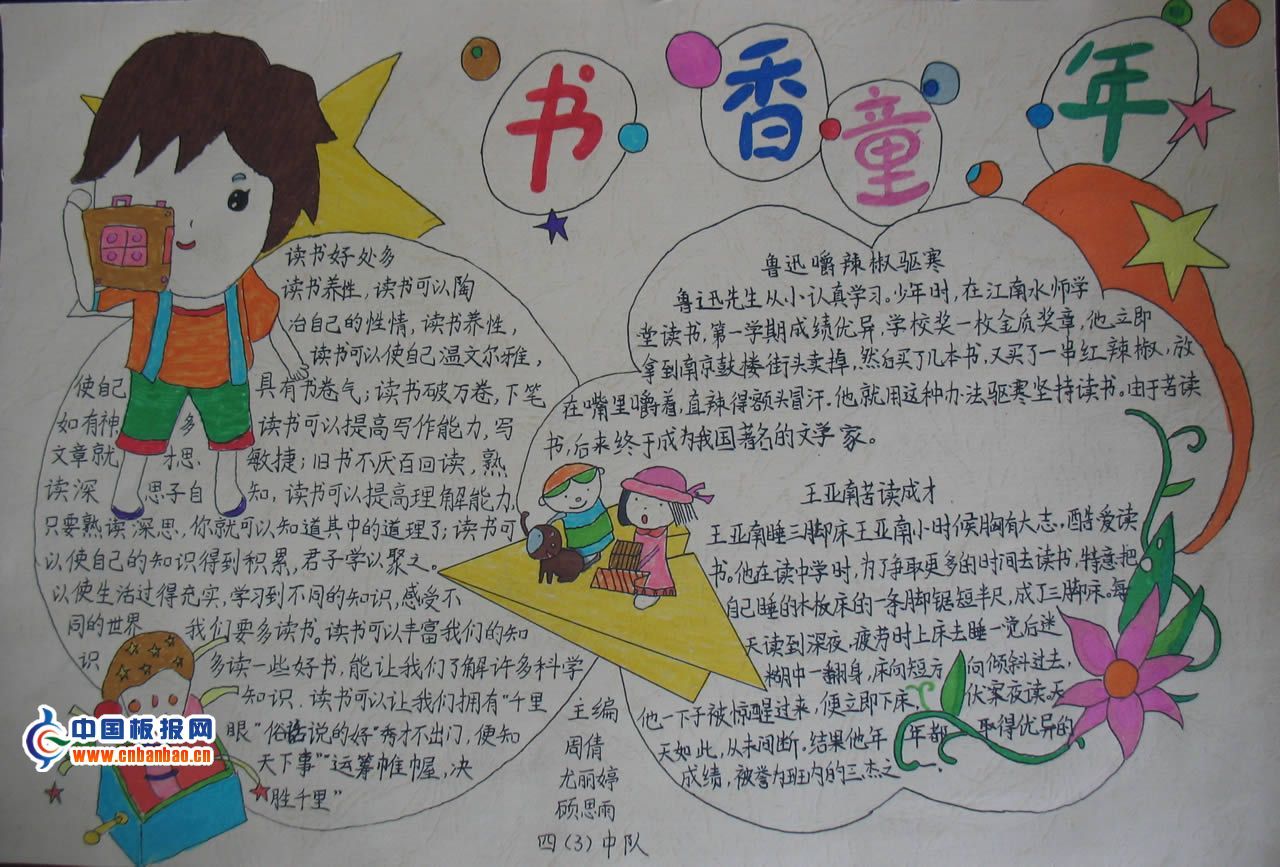 书香童年
读书好处多
读书养性，读书可以陶
冶自己的性情，读书养性，
读书可以使自己温文尔雅，
使自己 具有书卷气；读书破万卷，下笔
如有神 多 读书可以提高写作能力，写
文章就 才思 敏捷；旧书不厌百回读，熟
读深 思子自 知，读书可以提高理解能力，
只要熟读深思，你就可以知道其中的道理了；读书可
以使自己的知识得到积累，君子学以聚之。
以使生活过得充实，学习到不同的知识，感受不
同的世界 我们要多读书。读书可以丰富我们的知
识 多读一些好书，能让我们了解许多科学
知识．读书可以让我们拥有“千里
眼”俗话说的好“秀才不出门，便知
天下事”“运筹帷幄，决
胜千里”
鲁迅嚼辣椒驱寒
鲁迅先生从小认真学习。少年时，在江南水师学
堂读书，第一学期成绩优异，学校奖一枚金质奖章，他立即
拿到南京鼓楼街头卖掉，然后买了几本书，又买了一串红辣椒，放
在嘴里嚼着，直辣得额头冒汗．他就用这种办法驱寒坚持读书。由于苦读
书，后来终于成为我国著名的文学家。
王亚南苦读成才
王亚南睡三脚床王亚南小时候胸有大志，酷爱读
书。他在读中学时，为了争取更多的时间去读书，特意把
自己睡的木板床的一条脚锯短半尺，成了三脚床。每
天读到深夜，疲劳时上床去睡一觉后迷
糊中一翻身，床向短方 向倾斜过去，
他一下子被惊醒过来，便立即下床， 伏案夜读。天
天如此，从未间断．结果他年 年都 取得优异的
成绩，被誉为班内的三杰之一．
主编
周倩
尤丽婷
顾思雨
四（3）中队
中国板报网
www.cnbanbao.cn